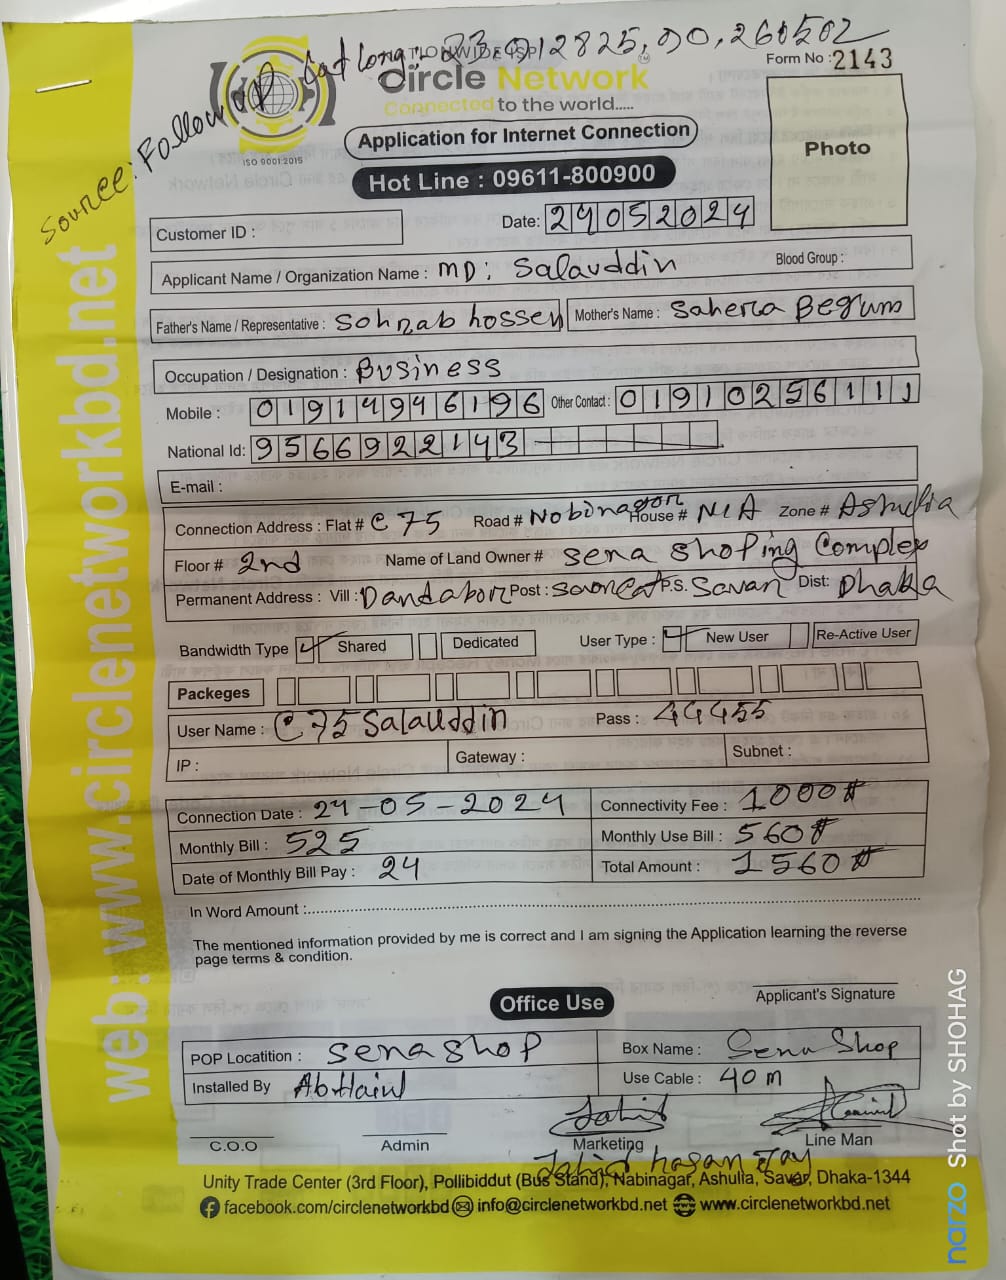 Lat Long: 23.912825,90,260502
NATIONWIDE ISP
Circle Network
Connected to the world.....
Form No : 2143
Source: Follow up
ISO 9001:2015
Application for Internet Connection
Photo
Hot Line : 09611-800900
Customer ID :
Date: 24052024
Applicant Name / Organization Name : MD: Salauddin Blood Group :
Father's Name / Representative : Sohrab hossen Mother's Name : Sahera Begum
Occupation / Designation : Business
Mobile : 01914946196 Other Contact : 01910256111
National Id: 9566922143
E-mail :
Connection Address : Flat # C 75 Road # Nobinagor House # N/A Zone # Ashulia
Floor # 2nd Name of Land Owner # Sena Shoping Complex
Permanent Address : Vill : Dandabor Post : P.S. Savar Dist: Dhaka
Bandwidth Type Shared Dedicated User Type : New User Re-Active User
Packeges
User Name : C75Salauddin Pass : 44455
IP : Gateway : Subnet :
Connection Date : 24-05-2024 Connectivity Fee : 1000
Monthly Bill : 525 Monthly Use Bill : 560
Date of Monthly Bill Pay : 24 Total Amount : 1560
In Word Amount :
The mentioned information provided by me is correct and I am signing the Application learning the reverse
page terms & condition.
Applicant's Signature
Office Use
POP Locatition : Sena Shop Box Name : Sena Shop
Installed By Use Cable : 40 m
C.O.O Admin Marketing Line Man
Unity Trade Center (3rd Floor), Pollibiddut (Bus Stand), Nabinagar, Ashulla, Savar, Dhaka-1344
facebook.com/circlenetworkbd info@circlenetworkbd.net www.circlenetworkbd.net
web: www.circlenetworkbd.net
narzo Shot by SHOHAG